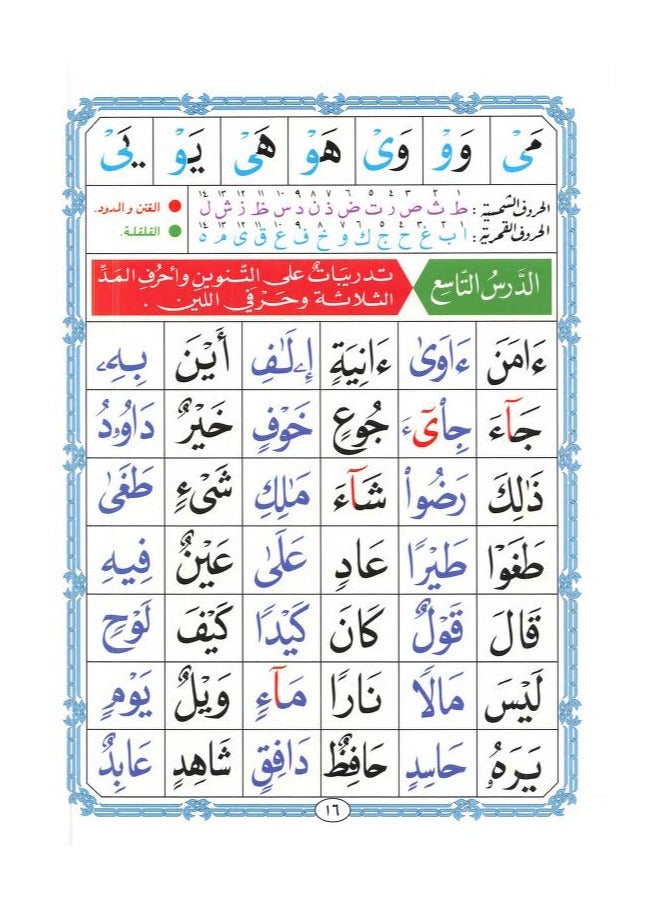 مَىْ وَوْ وَىْ هَوْ هَىْ يَوْ يَىْ
١ ٢ ٣ ٤ ٥ ٦ ٧ ٨ ٩ ١٠ ١١ ١٢ ١٣ ١٤
الحروف الشمسية : ط ث ص ر ت ض ذ ن د س ظ ز ش ل
● الغنن والمدود.
١ ٢ ٣ ٤ ٥ ٦ ٧ ٨ ٩ ١٠ ١١ ١٢ ١٣ ١٤
الحروف القمرية : أ ب غ ح ج ك و خ ف ع ق ى م ه
● القلقلة.
الدَّرسُ التّاسِع
تدريبَاتٌ على التَّنوينِ وأحرُفِ المَدِّ
الثلاثة وحَرْفَي اللين .
ءَامَنَ ءَاوَىٰ ءَانِيَةٍ إِۦلَٰفِ أَيْنَ بِهِۦ
جَآءَ جِاْىٓءَ جُوعٍ خَوْفٍ خَيْرٌ دَاوُۥدُ
ذَٰلِكَ رَضُواْ شَآءَ مَٰلِكِ شَىْءٍ طَغَىٰ
طَغَوْا طَيْرًا عَادٍ عَلَىٰ عَيْنٌ فِيهِ
قَالَ قَوْلٌ كَانَ كَيْدًا كَيْفَ لَوْحٍ
لَيْسَ مَالًا نَارًا مَآءٍ وَيْلٌ يَوْمٍ
يَرَهُۥ حَاسِدٍ حَافِظٌ دَافِقٍ شَاهِدٍ عَابِدٌ
١٦